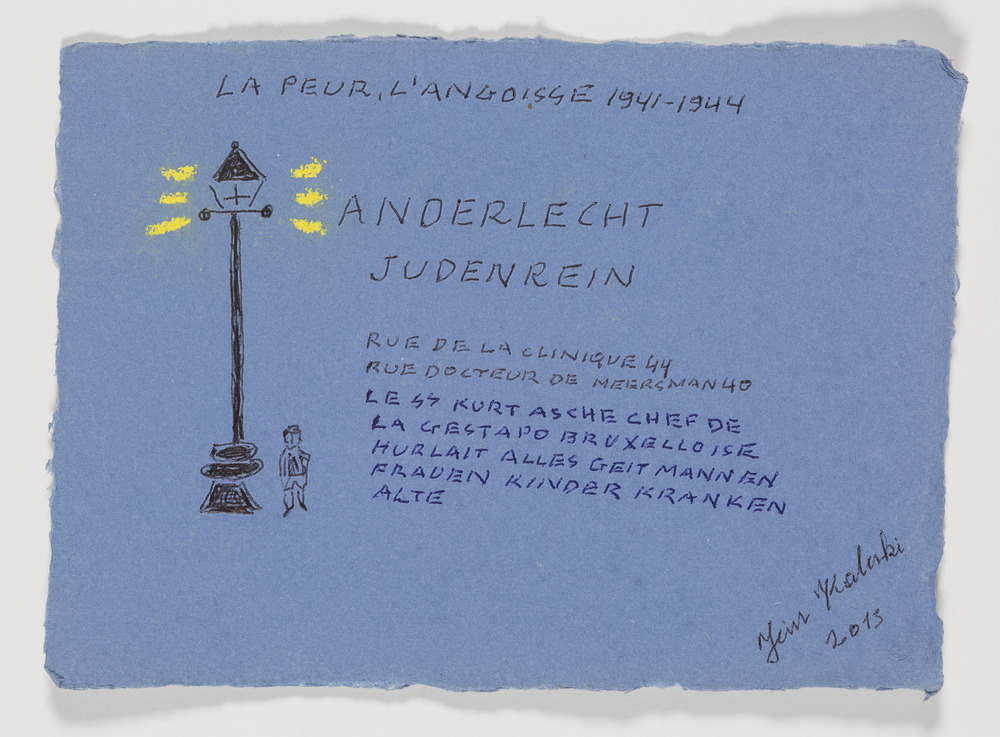 LA PEUR, L'ANGOISSE 1941-1944
ANDERLECHT
JUDENREIN
RUE DE LA CLINIQUE 44
RUE DOCTEUR DE MEERSMAN 40
LE SS KURT ASCHE CHEF DE
LA GESTAPO BRUXELLOISE
HURLAIT ALLES GEIT MANNEN
FRAUEN KINDER KRANKEN
ALTE
2013